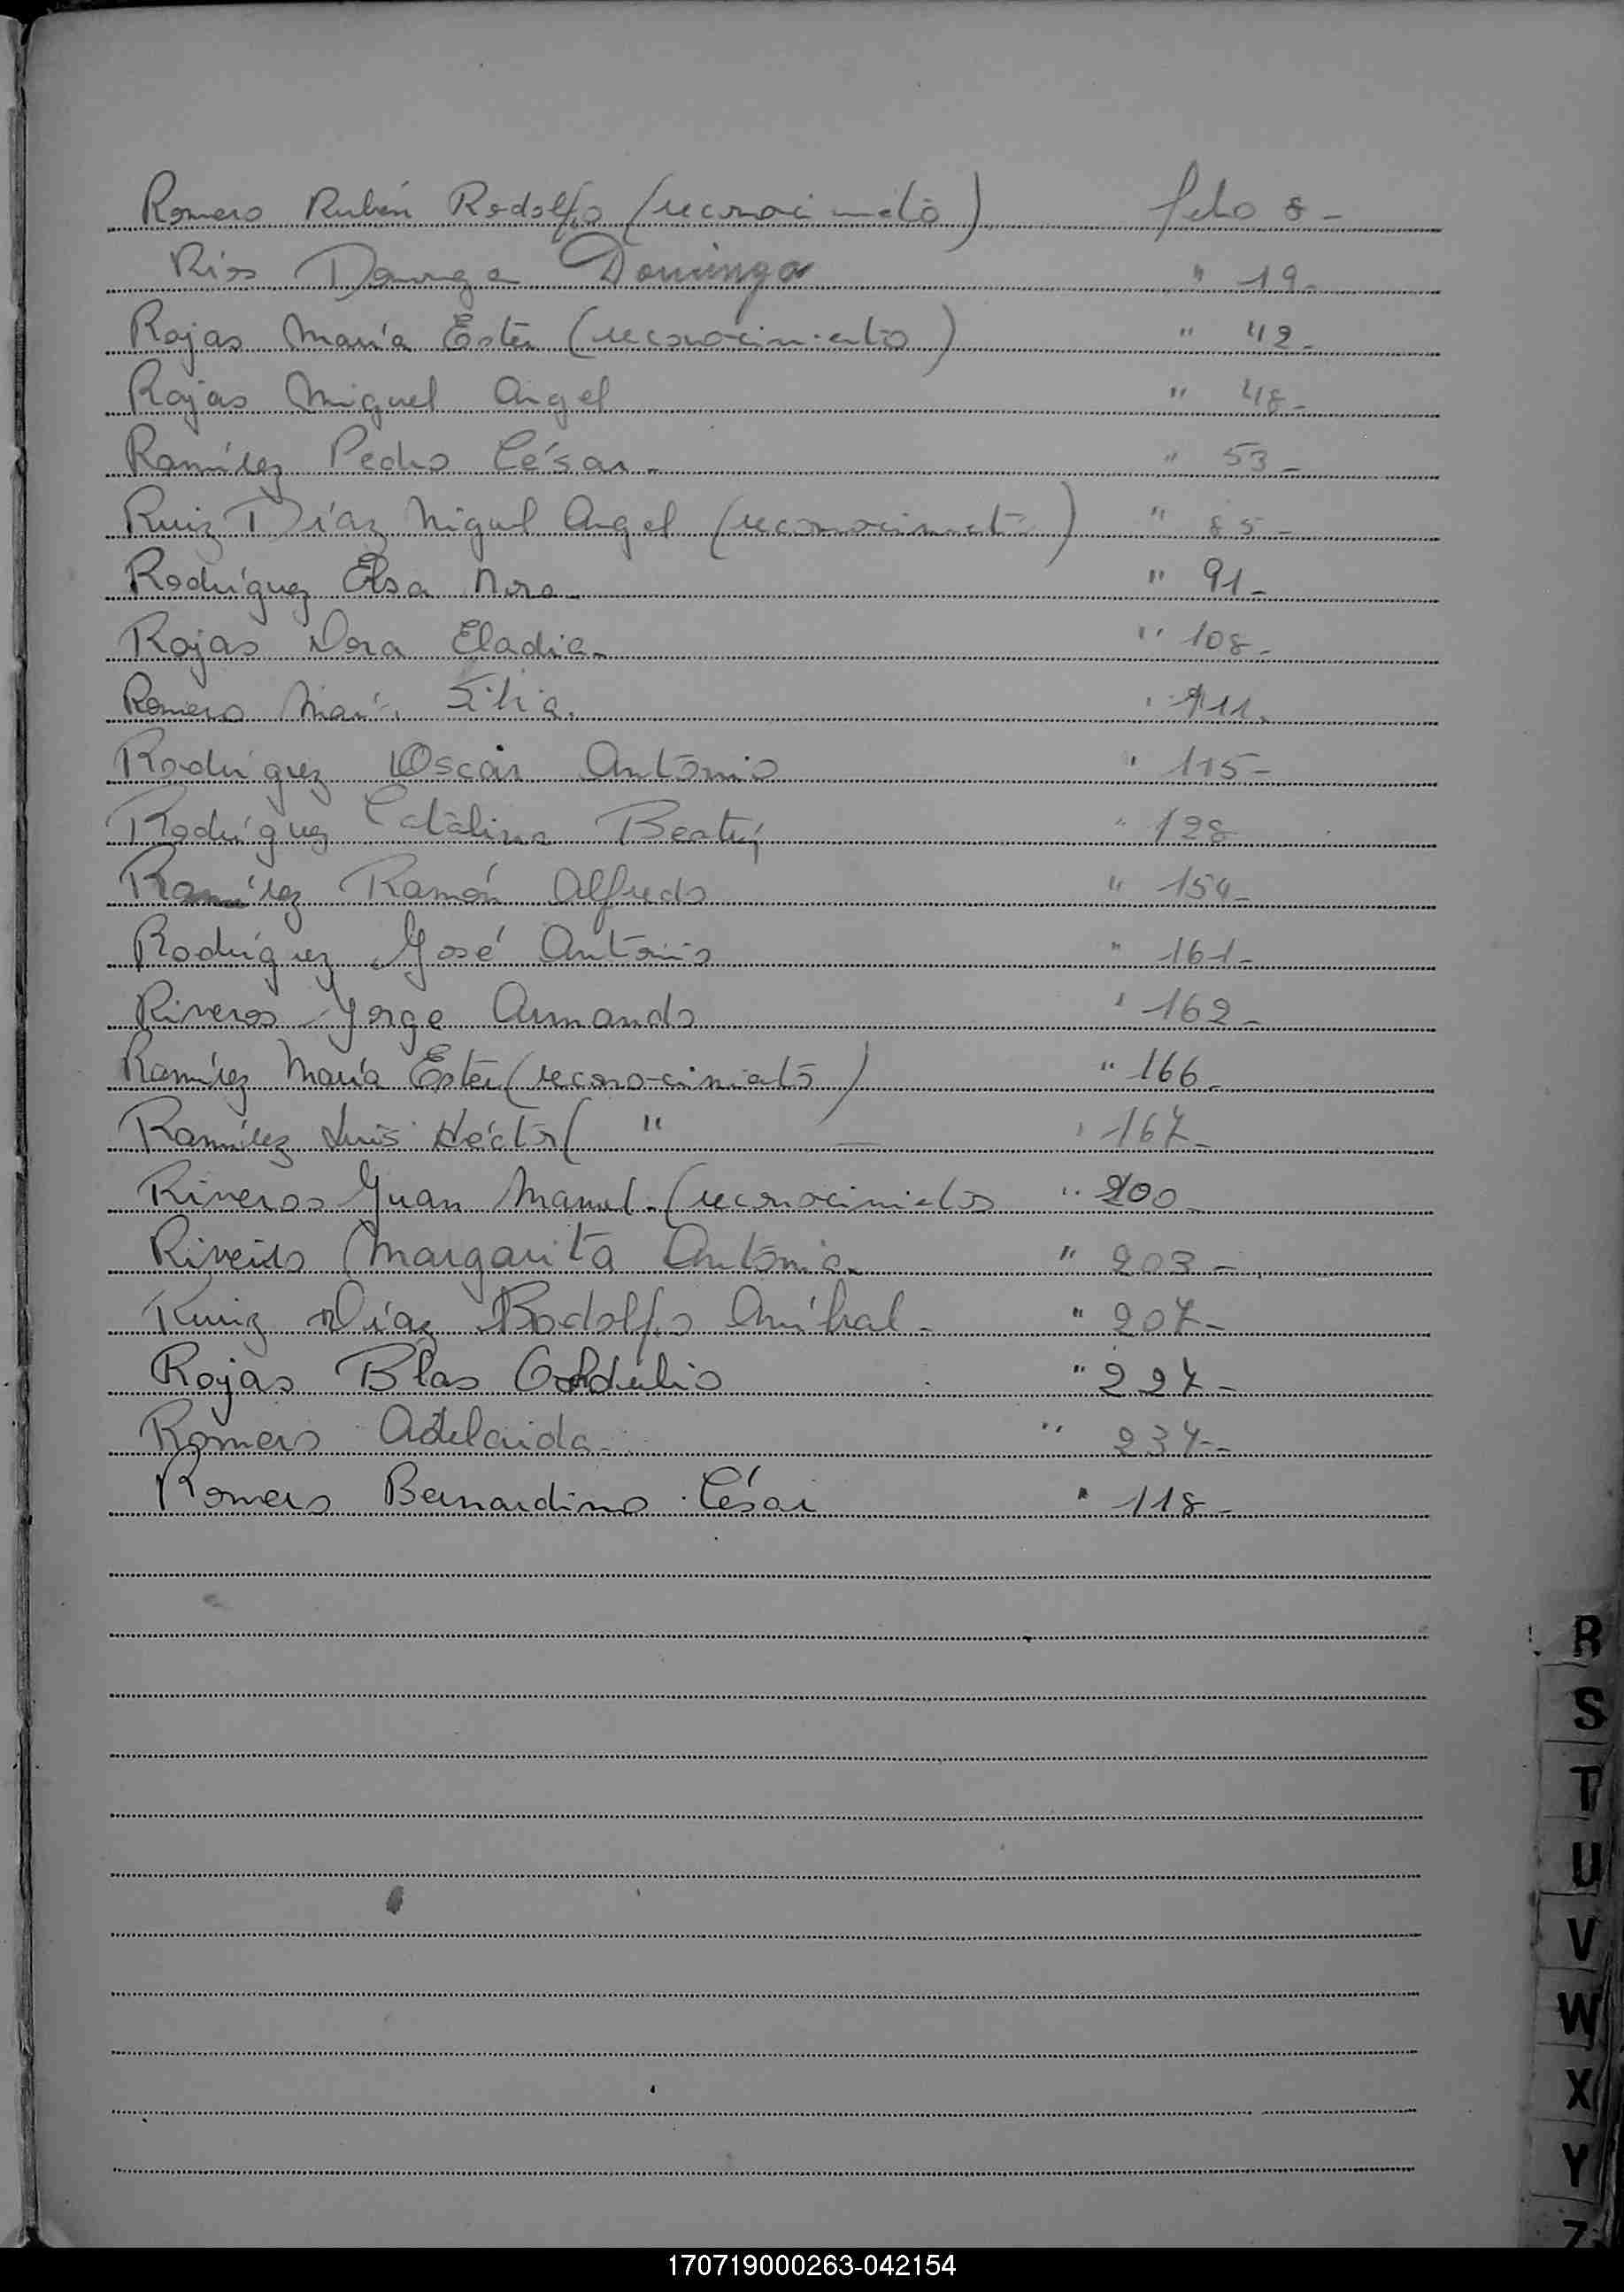 Romero Rubén Rodolfo (reconocimiento) folio 8-
Ríos Dominga Dominga " 19-
Rojas María Ester (reconocimiento) " 42-
Rojas Miguel Angel " 48-
Ramírez Pedro César- " 53-
Ruiz Díaz Miguel Angel (reconocimiento) " 85-
Rodríguez Elsa Nora- " 91-
Rojas Dora Eladia- " 108-
Romero María " 111-
Rodríguez Oscar Antonio " 115-
Rodríguez Catalina Beatriz " 128
Ramírez Ramón Alfredo " 154-
Rodríguez José Antonio " 161-
Riveros Jorge Armando " 162-
Ramírez María Ester (reconocimiento) " 166-
Ramírez Luis Héctor ( " — " 167-
Riveros Juan Manuel-(reconocimiento " 200-
Riveros Margarita Antonia- " 203-
Ruiz Díaz Rodolfo Aníbal- " 207-
Rojas Blas " 227-
Romero Adelaida- " 237-
Romero Bernardino César " 118-
R
S
T
U
V
W
X
Y
Z
170719000263-042154